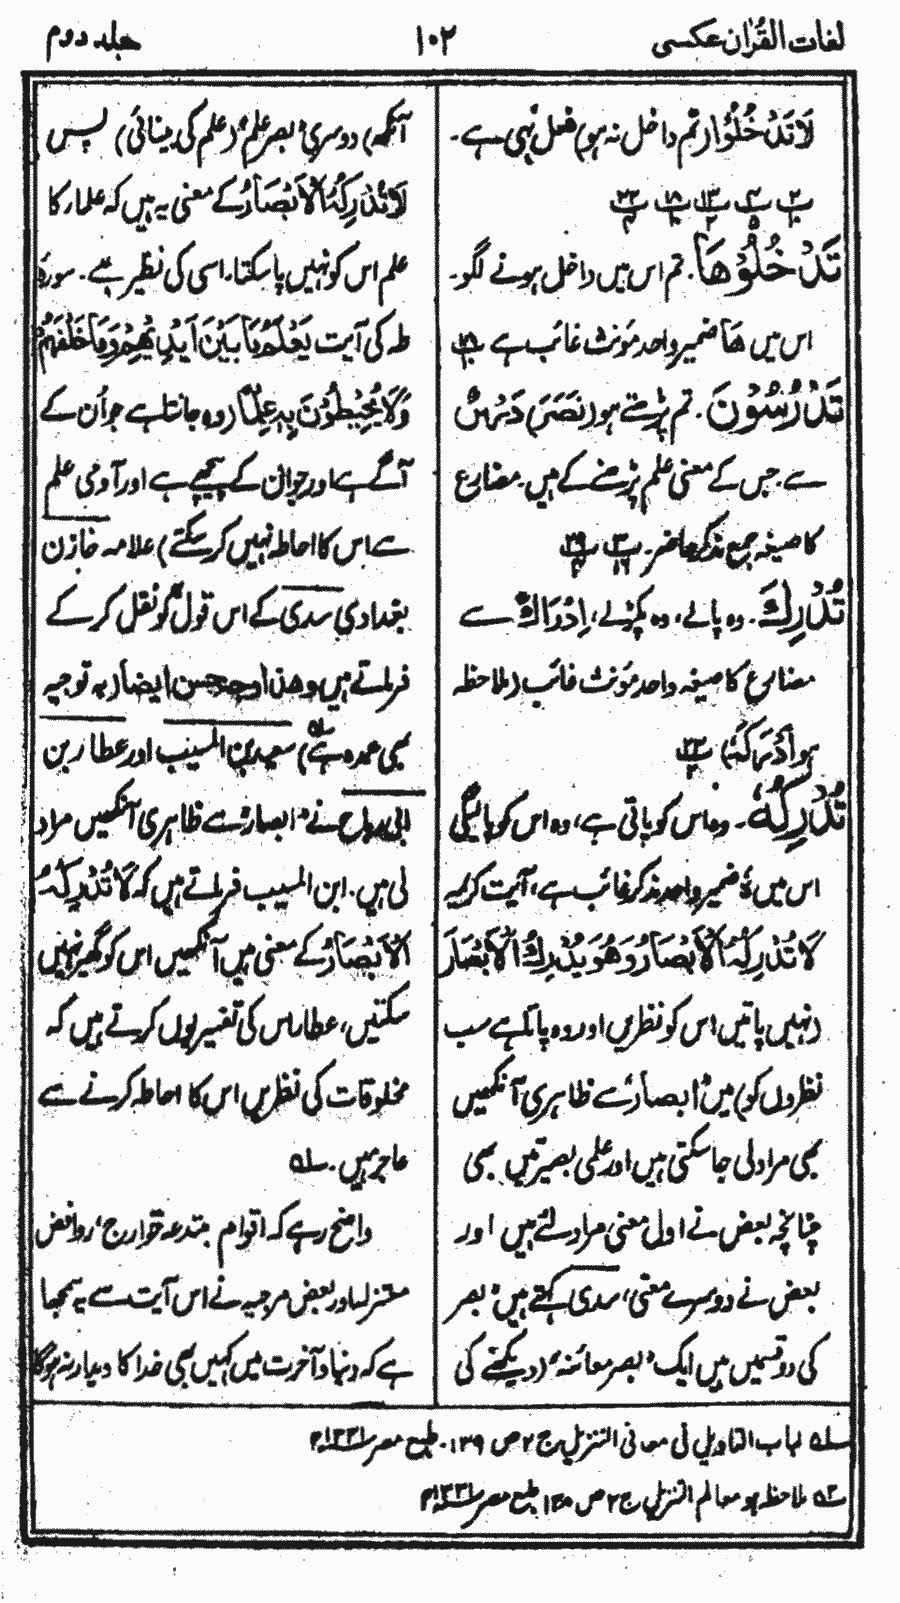 لغات القرآن عکسی
۱۰۲
جلد دوم
لَا تَدْخُلُوْا (تم داخل نہ ہو) فعل نہی ہے۔
تَدْخُلُوْهَا۔ تم اس میں داخل ہونے لگو۔
اس میں هَا ضمیر واحد مؤنث غائب ہے
تَدْرُسُوْنَ۔ تم پڑھتے ہو (نَصَرَ) دَرْسٌ
سے۔ جس کے معنی علم پڑھنے کے ہیں۔ مضارع
کا صیغہ جمع مذکر حاضر۔
تُدْرِكَ۔ وہ پالے، وہ پکڑلے، اِدْرَاكٌ سے
مضارع کا صیغہ واحد مؤنث غائب (ملاحظہ
ہو اَدْرَكَهُ)
تُدْرِكُهُ۔ وہ اس کو پاتی ہے، وہ اس کو پائیگی
اس میں هُ ضمیر واحد مذکر غائب ہے، آیت کریمہ
لَا تُدْرِكُهُ الْاَبْصَارُ وَهُوَ يُدْرِكُ الْاَبْصَارَ
(نہیں پاتیں اس کو نظریں اور وہ پاتا ہے سب
نظروں کو) میں "ابصار" سے ظاہری آنکھیں
بھی مراد لی جاسکتی ہیں اور علمی بصیرتیں بھی
چنانچہ بعض نے اولی معنی مراد لئے ہیں اور
بعض نے دوسرے معنی، سدی کہتے ہیں "بصر
کی دو قسمیں ہیں ایک "بصر معائنہ" (دیکھنے کی
آنکھ) دوسری "بصر علم" (علم کی بینائی) پس
لَا تُدْرِكُهُ الْاَبْصَارُ کے معنی یہ ہیں کہ علماء کا
علم اس کو نہیں پا سکتا۔ اسی کی نظیر ہے۔ سورۂ
طہ کی آیت يَعْلَمُ مَا بَيْنَ اَيْدِيْهِمْ وَمَا خَلْفَهُمْ
وَلَا يُحِيْطُوْنَ بِهٖ عِلْمًا (وہ جانتا ہے جو اُن کے
آگے ہے اور جو ان کے پیچھے ہے اور آدمی علم
سے اس کا احاطہ نہیں کر سکتے) علامہ خازن
بغدادی سدی کے اس قول کو نقل کر کے
فرماتے ہیں وھذا وجہ حسن ایضاً (یہ توجیہ
بھی عمدہ ہے) سعید بن المسیب اور عطاء بن
ابی رباح نے "ابصار" سے ظاہری آنکھیں مراد
لی ہیں۔ ابن المسیب فرماتے ہیں کہ لَا تُدْرِكُهُ
الْاَبْصَارُ کے معنی ہیں آنکھیں اس کو گھیر نہیں
سکتیں، عطاء اس کی تفسیر یوں کرتے ہیں کہ
مخلوقات کی نظریں اس کا احاطہ کرنے سے
عاجز ہیں۔ ۲ے
واضح رہے کہ اقوام مبتدعہ خوارج، روافض
معتزلہ اور بعض مرجیہ نے اس آیت سے یہ سمجھا
ہے کہ دنیا و آخرت میں کہیں بھی خدا کا دیدار نہ ہوگا
۱ے لباب التاویل فی معانی التنزیل ج ۲ ص ۱۳۹۔ طبع مصر ۱۳۳۱ھ
۲ے ملاحظہ ہو معالم التنزیل ج ۲ ص ۱۳۰ طبع مصر ۱۳۳۱ھ